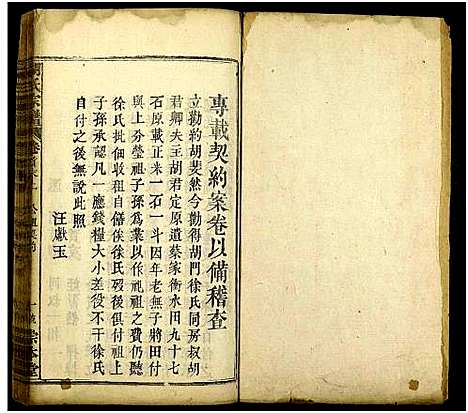 專載契約案卷以備稽查
立勸約胡斐然今勸得胡門徐氏同房叔胡
君卿夫主胡君定原遺蔡家衝水田九十七
石原載正米一石一斗因年老無子將田付
與上分瑩祖子孫為業以作祀祖之費仍聽
徐氏批佃收租自僐俟徐氏歿後俱付祖上
子孫承認凡一應錢糧大小差役不干徐氏
自付之後無說此照
汪獻玉
胡氏宗譜